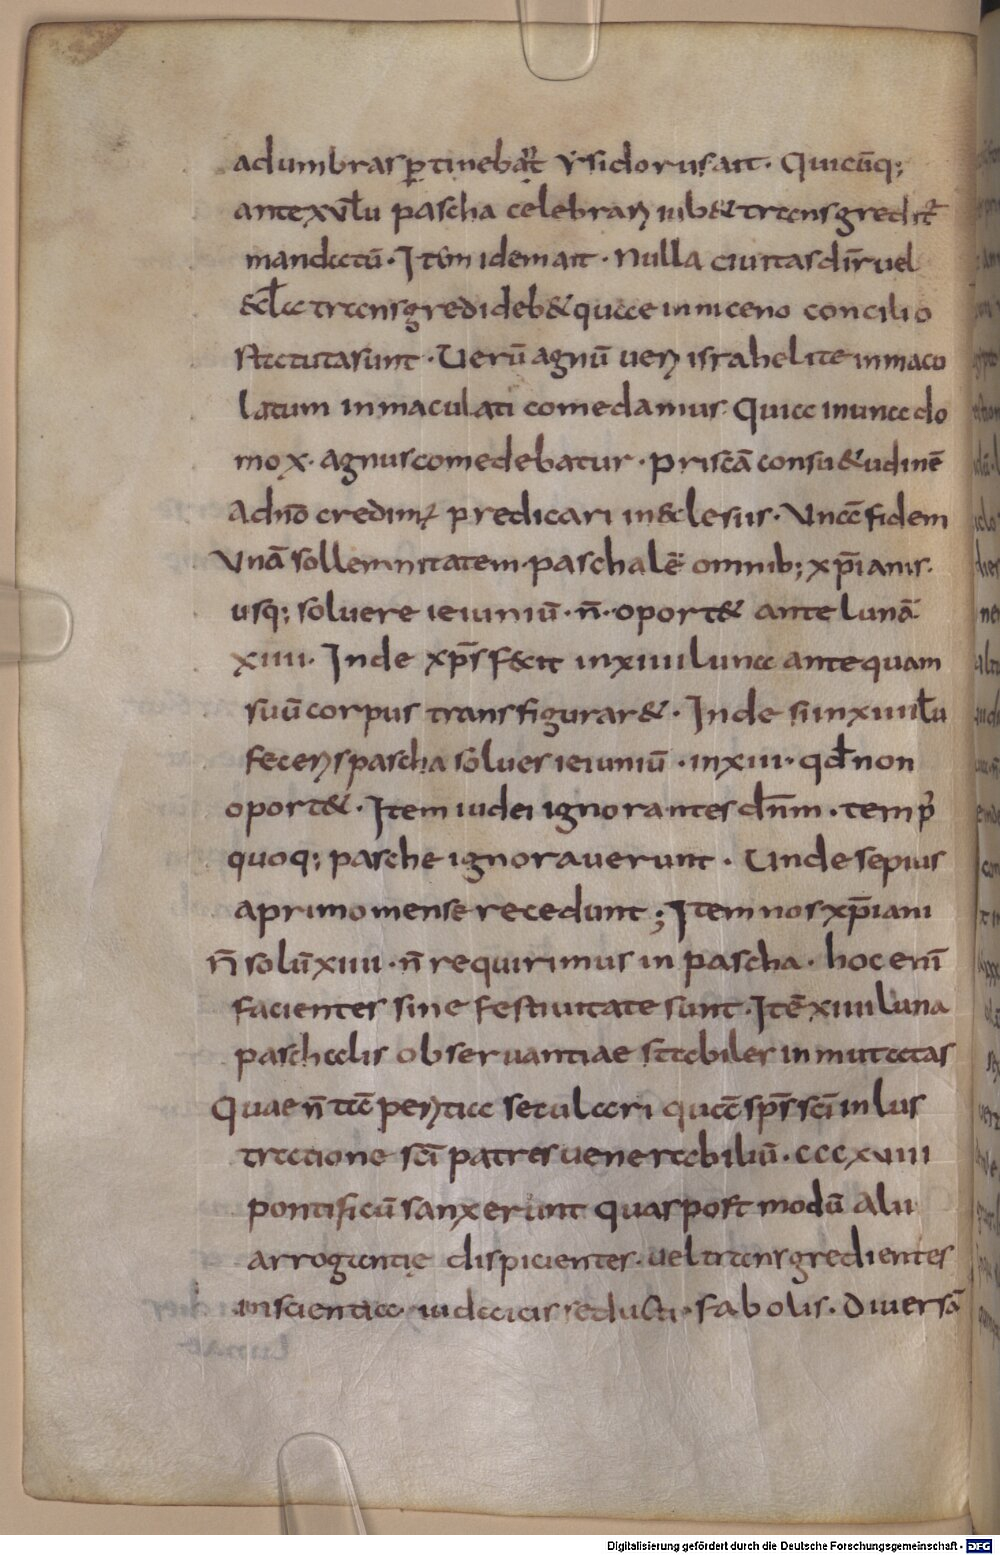 adumbras ꝑtinebāt Ysidorus ait· Quicūq;
ante xv lu pascha celebrar& iub& transgredit᷑
mandatū· Itēm idem ait· Nulla ciuitas dir̄ uel
&cła transgredi deb& quae in niceno concilio
statuta sunt· Uerū agnū ueri israhelite inmacu
latum inmaculati comedamus· Quia in una do
mo x· agnus comedebatur· priscā consu&udinē
Adnō credim᷑ predicari in &clesiis· Vnā fidem
Vnā sollemnitatem paschalē omnib; xp̄ianis·
usq; soluere ieiuniū· n̄· oport& ante lunā
xiiii· Inde xp̄s fecit in xiiii luna antequam
suū corpus transfigurar&· Inde si in xiiii lu
feceris pascha solues ieiuniū· in xiii· qd̄ non
oport&· Item iudei ignorantes dn̄m· temp᷒
quoq; pasche ignorauerunt· Unde sepius
a primo mense recedunt; Item nos xp̄iani
n̄ solū xiiii· n̄ requirimus in pascha· hoc enī
facientes sine festiuitate sunt· Itē xiiii luna
paschalis obseruantiae stabiles inmutatas
Quae n̄ tā peritia seculari quā sp̄s sc̄i inlus
tratione sc̄i patres uenerabiliū· cccxviii
pontificū sanxerunt quas post modū alii
arrogantię dispicientes· uel transgredientes
inscientia· iudaicis seducti· fabolis· Diuersā
Digitalisierung gefördert durch die Deutsche Forschungsgemeinschaft - DFG